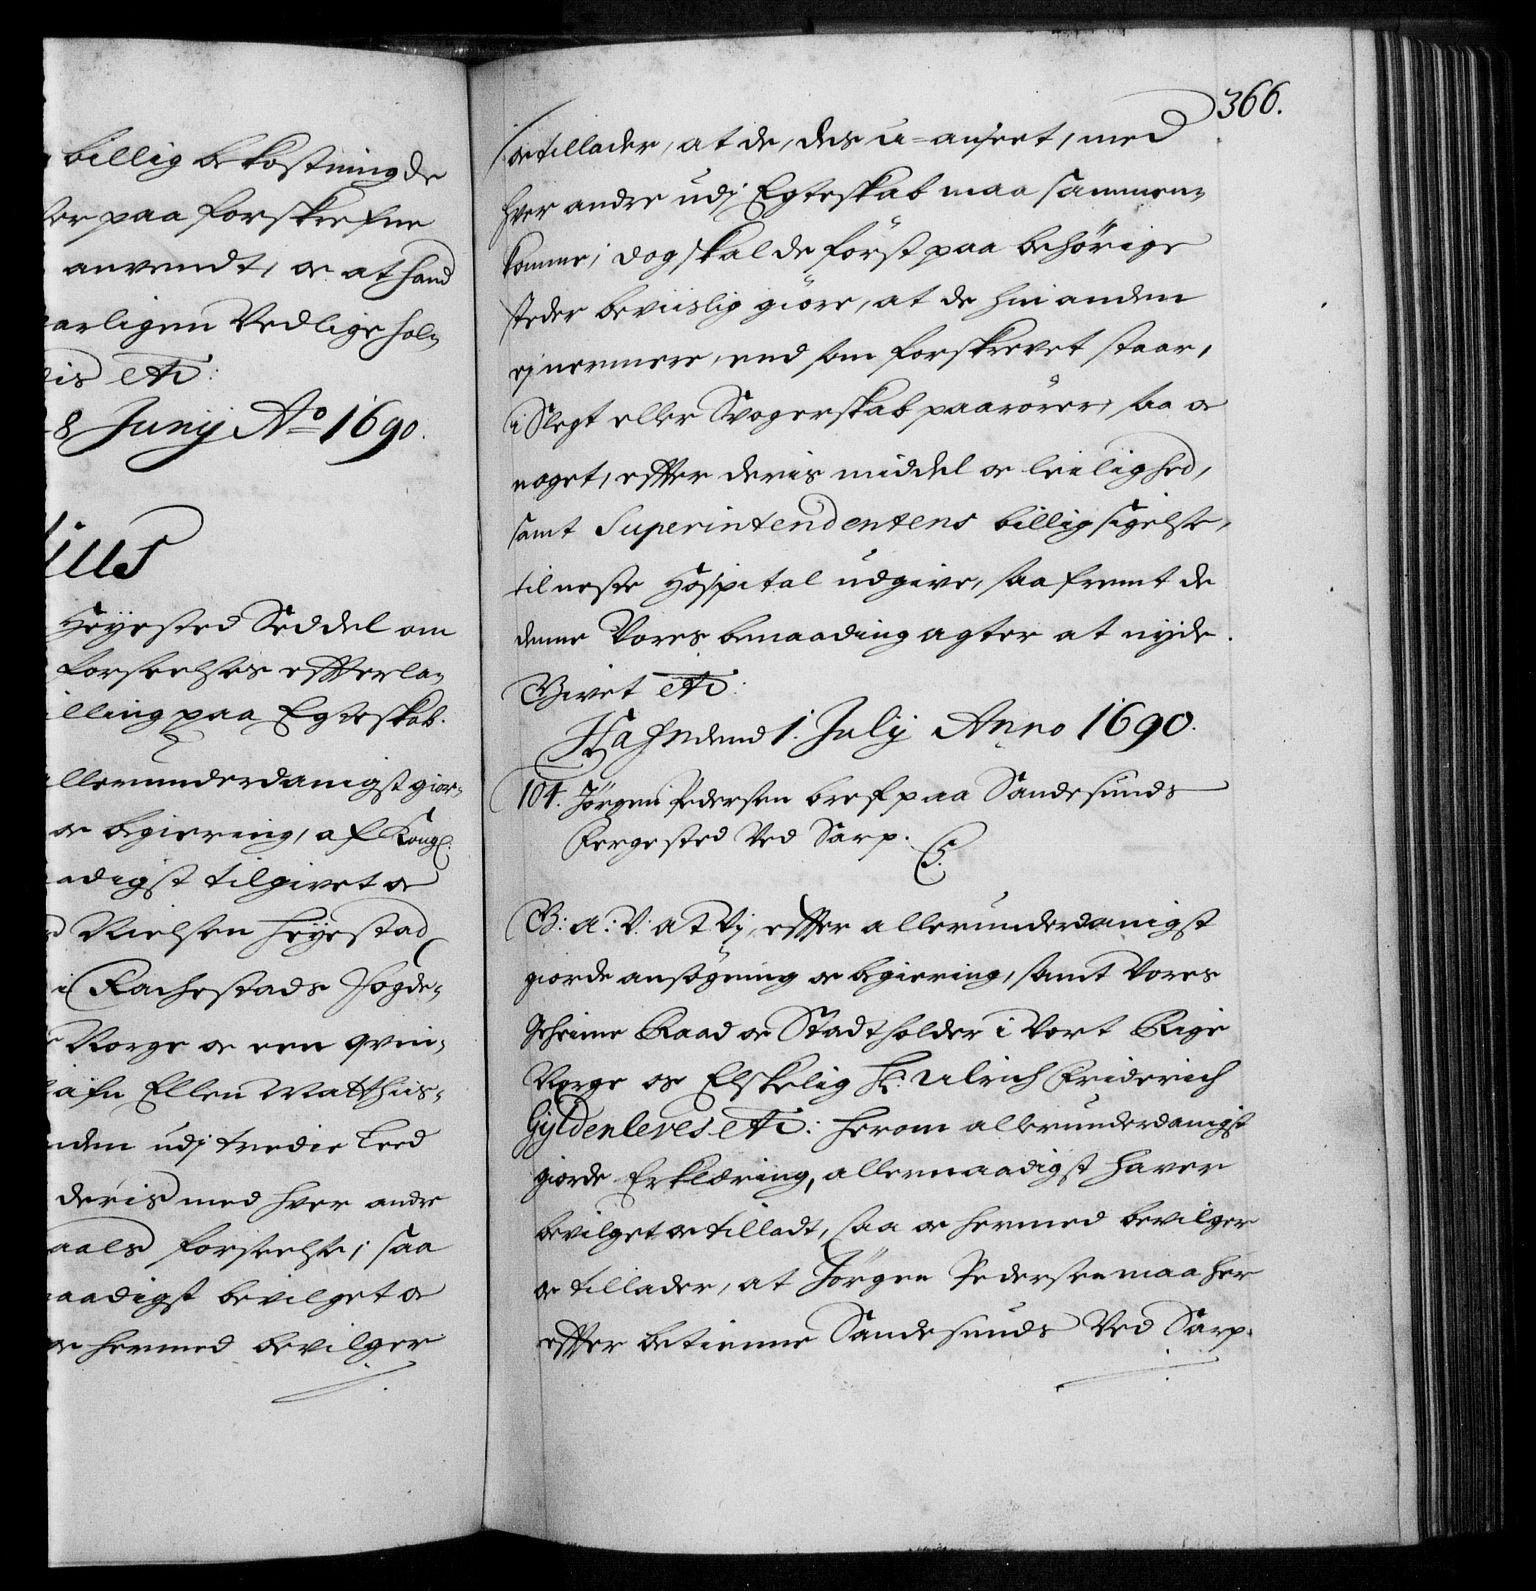 billig bekostning de
er paa forskrefne
anvendt, oc at hand
arligen Vedlige hol=
is etc:
8 Junij Ao 1690.
ius
Høyested Seddel om
forseelses efterla=
illing paa Egteskab.
llerunderdanigst gior=
oc begiering, af Kongl:
adigst tilgivet oc
Nielsen Høyestad
i Rachestads Fogde=
Norge oc een qvin=
afn Ellen Matthis=
nden udj tredie Leed
deris med hver andre
aals forseelse; saa
aadigst bevilget oc
oc hermed bevilger
366.
oc tillader, at de, des u=anseet, med
hver andre udj Egteskab maa sammen=
komme; dog skal de först paa behörige
steder beviislig giöre, at de hin anden
ej nermere, end som forskrevet staar,
i Slegt eller Svogerskab paarörer, saa oc
noget, effter deris middel oc leilighed,
samt Superintendentens billig sigelse,
til neste Hospital udgive, saa fremt de
denne Vores benaading agter at nyde.
Givet etc:
Hafn dend 1. Julij Anno 1690.
104. Jörgen Pedersen bref paa Sandesunds
Fergested Ved Sarp.
G: A: V: at Vj, effter allerunderdanigst
giorde ansögning oc begiering, samt Vores
Geheime Raad oc Stadtholder i Vort Rige
Norge os Elskelig Hr: Ulrich Friderich
Gyldenleves etc: herom allerunderdanigst
giorde Erklæring, allernaadigst haver
bevilget oc tilladt, saa oc hermed bevilger
oc tillader, at Jörgen Pedersen maa her
effter betienne Sandesunds Ved Sarp.